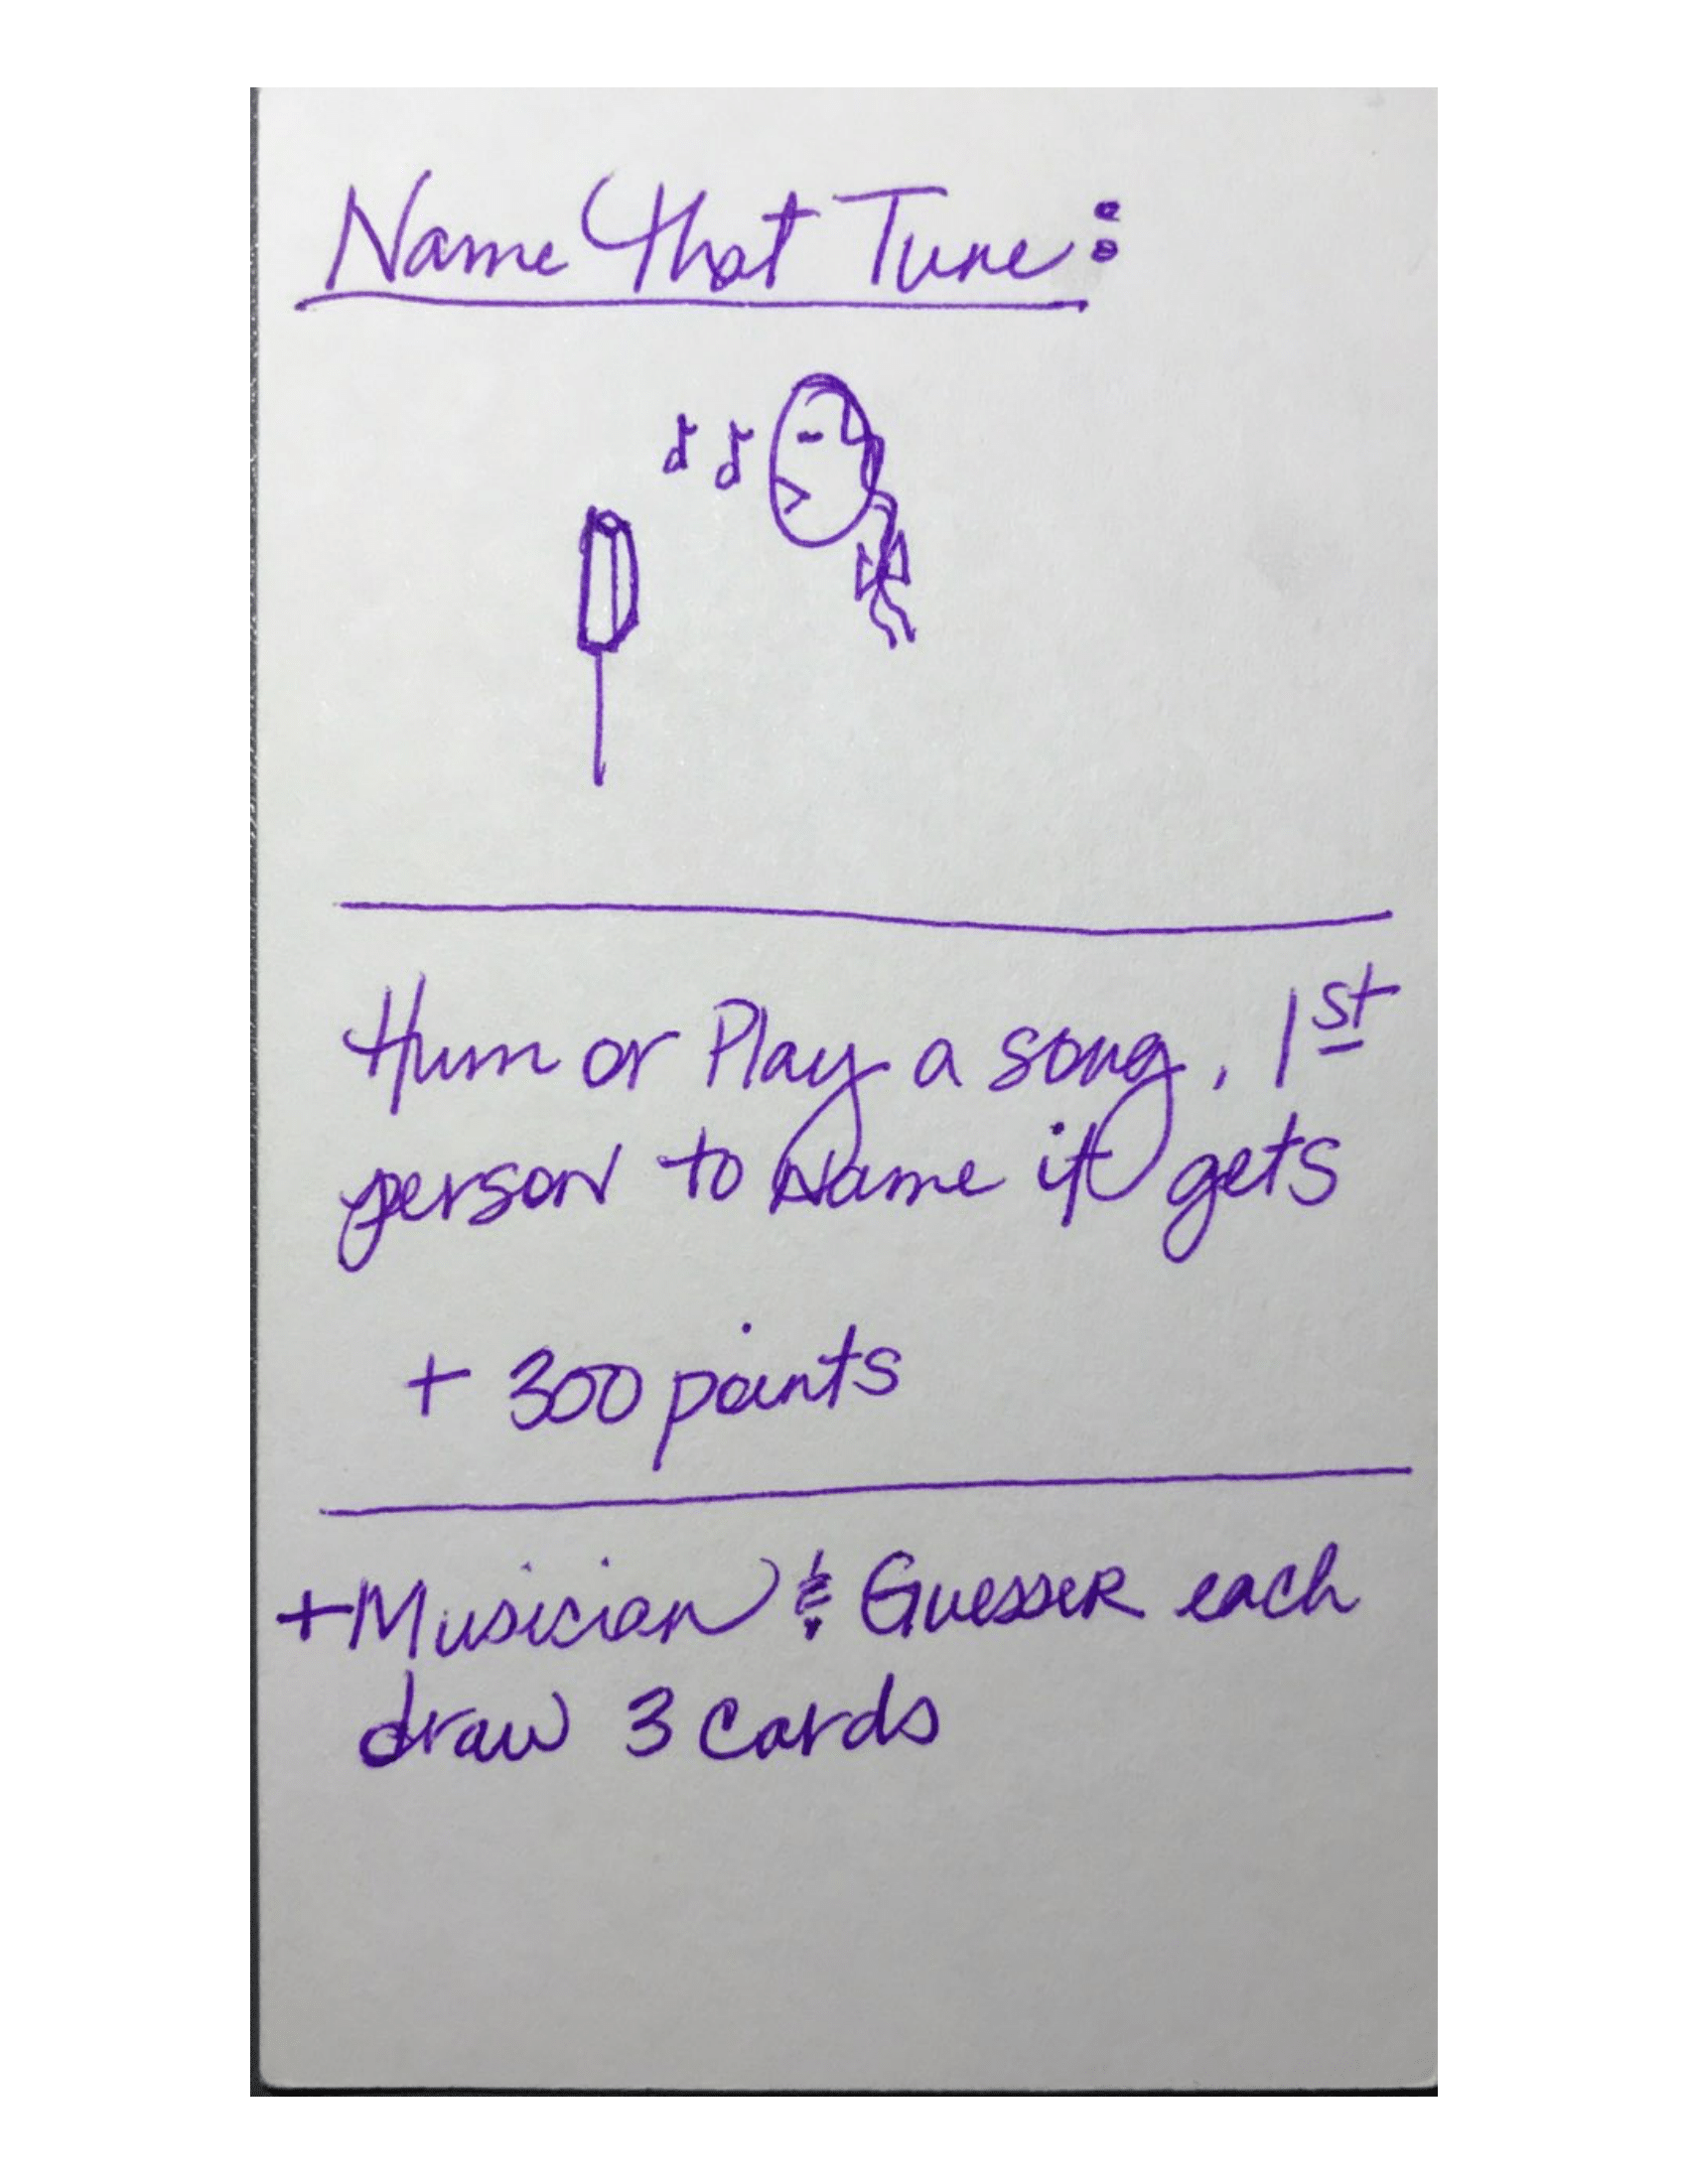 Name that Tune:
Hum or Play a song, 1st
person to Name it gets
+ 300 points
+Musician & Guesser each
draw 3 cards